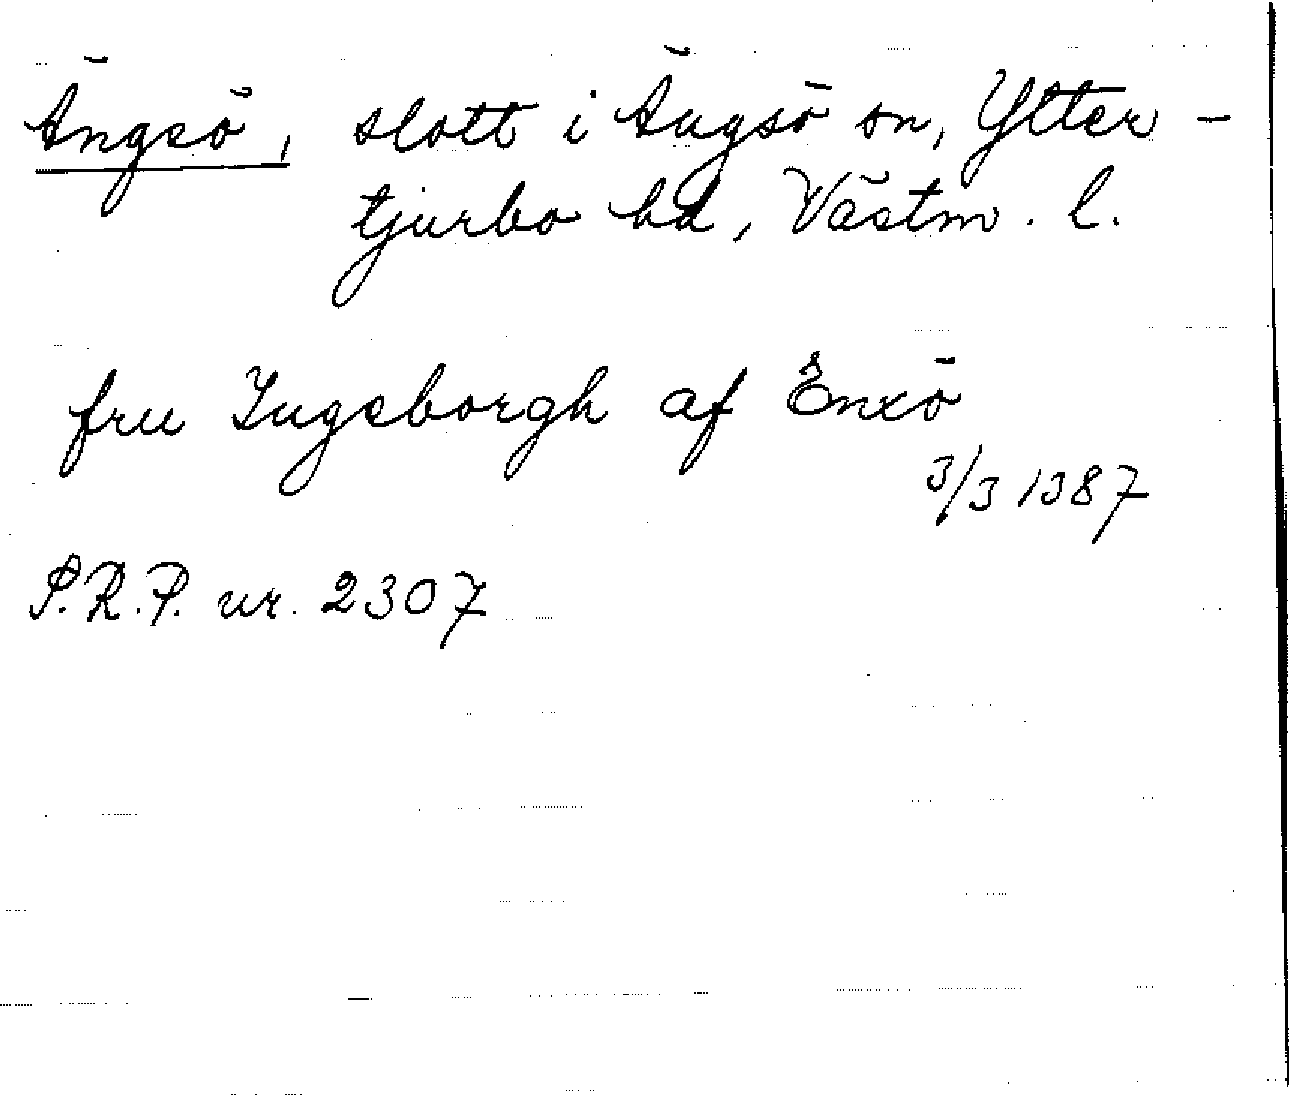 Ängsö, slott i Ängsö sn, Ytter-
tjurbo hd, Västm. l.
fru Ingeborgh af Enxö
3/3 1387
S.R.P. nr. 2307